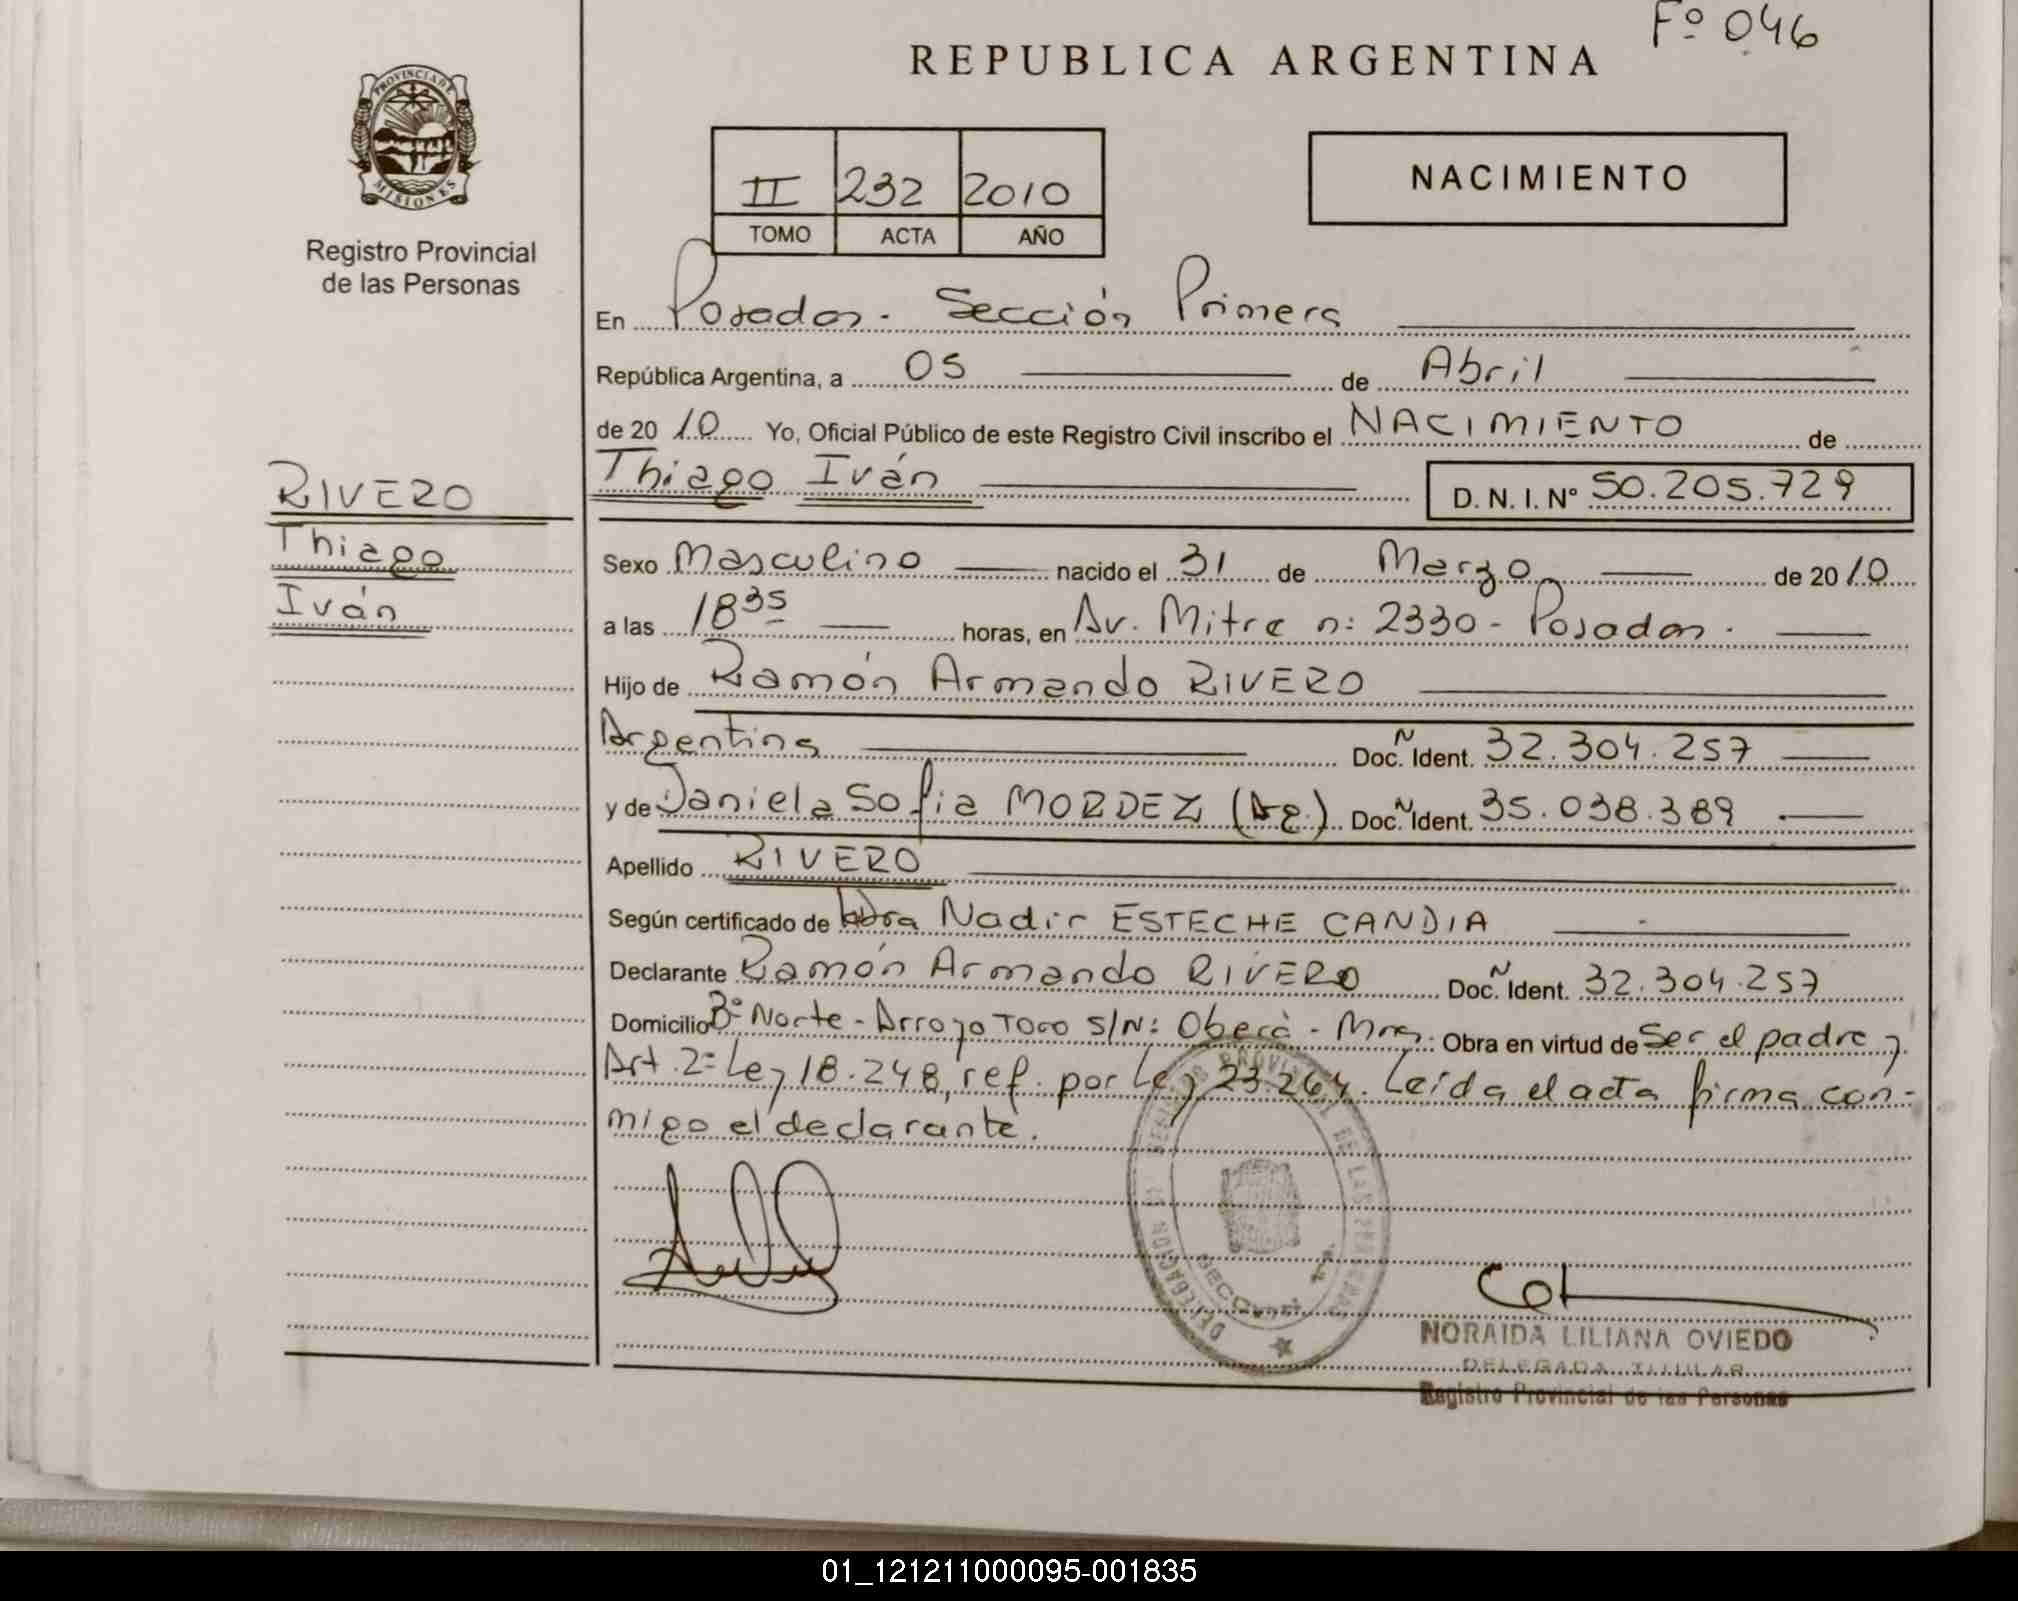 Fº 046
REPUBLICA ARGENTINA
PROVINCIA DE
MISIONES
Registro Provincial
de las Personas
II 232 2010
TOMO ACTA AÑO
NACIMIENTO
En Posadas. Sección Primera
República Argentina, a 05 de Abril
de 2010 Yo, Oficial Público de este Registro Civil inscribo el NACIMIENTO de
Thiago Iván D. N. I. Nº 50.205.729
RIVERO
Thiago
Iván
Sexo Masculino nacido el 31 de Marzo de 2010
a las 18 35 horas, en Av. Mitre n: 2330 - Posadas.
Hijo de Ramón Armando RIVERO
Argentina Doc. Ident. 32.304.257
y de Daniela Sofia MORDEZ (Ag.) Doc. Ident. 35.038.389
Apellido RIVERO
Según certificado de Nadir ESTECHE CANDIA
Declarante Ramón Armando RIVERO Doc. Ident. 32.304.257
Domicilio Bº Norte - Arroyo Toro S/N: Oberá - Mnes. Obra en virtud de Ser el padre y
Art. 2º Ley 18.248, ref. por Ley 23.264. Leída el acta firma con-
migo el declarante.
PROVINCIAL DE LAS PERSONAS
DELEGACION
SECCION
NORAIDA LILIANA OVIEDO
DELEGADA TITULAR
Registro Provincial de las Personas
01_121211000095-001835